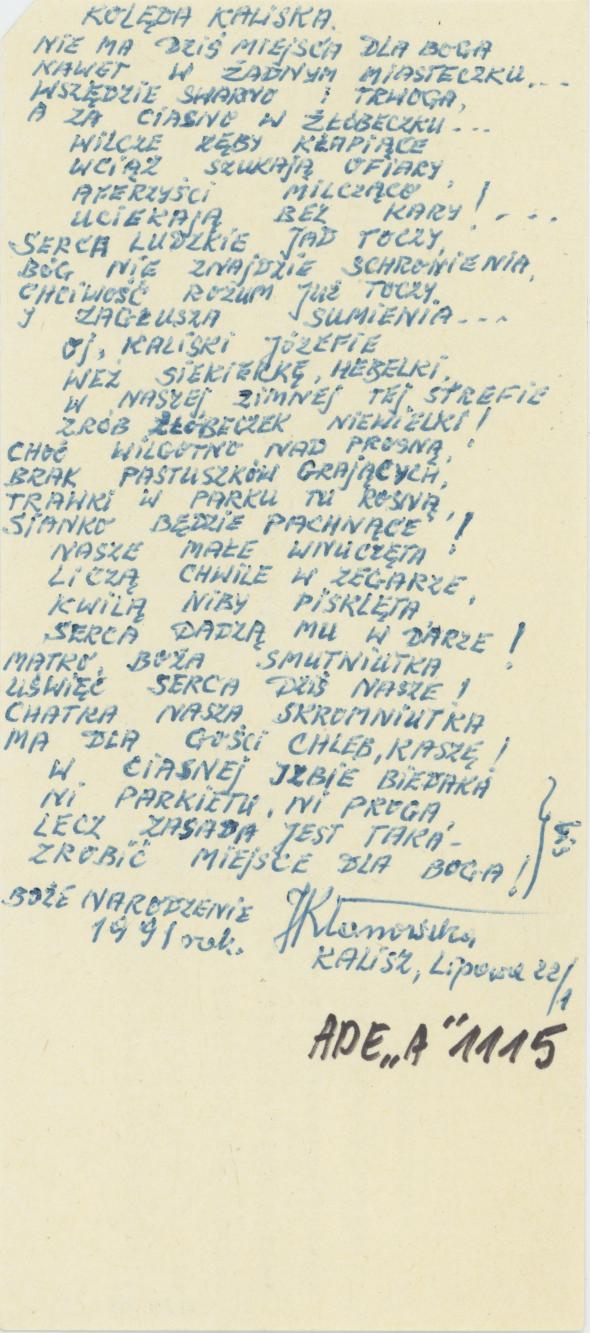 KOLĘDA KALISKA.
NIE MA DZIŚ MIEJSCA DLA BOGA
NAWET W ŻADNYM MIASTECZKU...
WSZĘDZIE SWARNO I TRWOGA,
A ZA CIASNO W ŻŁÓBECZKU...
WILCZE ZĘBY KŁAPIĄCE
WCIĄŻ SZUKAJĄ OFIARY,
AFERZYŚCI MILCZĄCO
UCIEKAJĄ BEZ KARY!...
SERCA LUDZKIE JAD TOCZY,
BÓG NIE ZNAJDZIE SCHRONIENIA,
CHCIWOŚĆ ROZUM JUŻ TOCZY
I ZAGŁUSZA SUMIENIA...
OJ, KALISKI JÓZEFIE
WEŹ SIEKIERKĘ, HEBELKI,
W NASZEJ ZIMNEJ TEJ STREFIE
ZRÓB ŻŁÓBECZEK NIEWIELKI!
CHOĆ WILGOTNO NAD PROSNĄ,
BRAK PASTUSZKÓW GRAJĄCYCH,
TRAWKI W PARKU TU ROSNĄ,
SIANKO BĘDZIE PACHNĄCE!
NASZE MAŁE WNUCZĘTA
LICZĄ CHWILE W ZEGARZE,
KWILĄ NIBY PISKLĘTA
SERCA DADZĄ MU W DARZE!
MATKO, BOŻA SMUTNIUTKA
UŚWIĘĆ SERCA DZIŚ NASZE!
CHATKA NASZA SKROMNIUTKA
MA DLA GOŚCI CHLEB, KASZĘ!
W CIASNEJ IZBIE BIEDAKA
NI PARKIETU, NI PROGA,
LECZ ZASADA JEST TAKA-
ZROBIĆ MIEJSCE DLA BOGA!
BOŻE NARODZENIE
1991 rok.
JKlanowska
KALISZ, Lipowa 22/1
ADE „A" 1115